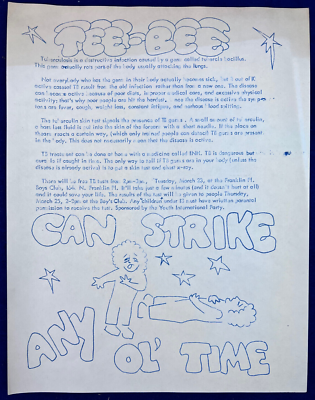 TEE-BEE
Tuberculosis is a destructive infection caused by a germ called tubercle bacillus.
This germ actually eats part of the body usually attacking the lungs.
Not everybody who has the germ in their body actually becomes sick, but 1 out of
active cases of TB result from the old infection rather than from a new one. The disease
can become active because of poor diets, in poor medical care, and excessive physical
activity; that's why poor people are hit the hardest. once the disease is active the
are fever, cough, weight loss, constant fatigue, and serious food
The tuberculin skin test signals the presence of TB germs. A small amount of tuberculin,
a harmless fluid is put into the skin of the forearm with a short needle. If the place on
the causes a certain way, (which only trained people can detect) TB germs are present
in the body. This does not necessarily mean that the disease is active.
TB treatment can be done at home with a medicine called INH. TB is dangerous but can
cure is if caught in time. The only way to tell if TB germs are in your body (unless the
disease is already active) is to get a skin test and chest x-ray.
There will be free TB tests from 2pm-5pm, Tuesday, March 23, at the Franklin Pl.
Boys Club, N. Franklin Pl. It'll take just a few minutes (and it doesn't hurt at all)
and it could save your life. The results of the test will be given to people Thursday,
March 25, 2-5pm. at the Boy's Club. Any children under must have written parental
permission to receive the test. Sponsored by the Youth International Party.
CAN STRIKE
ANY OL' TIME